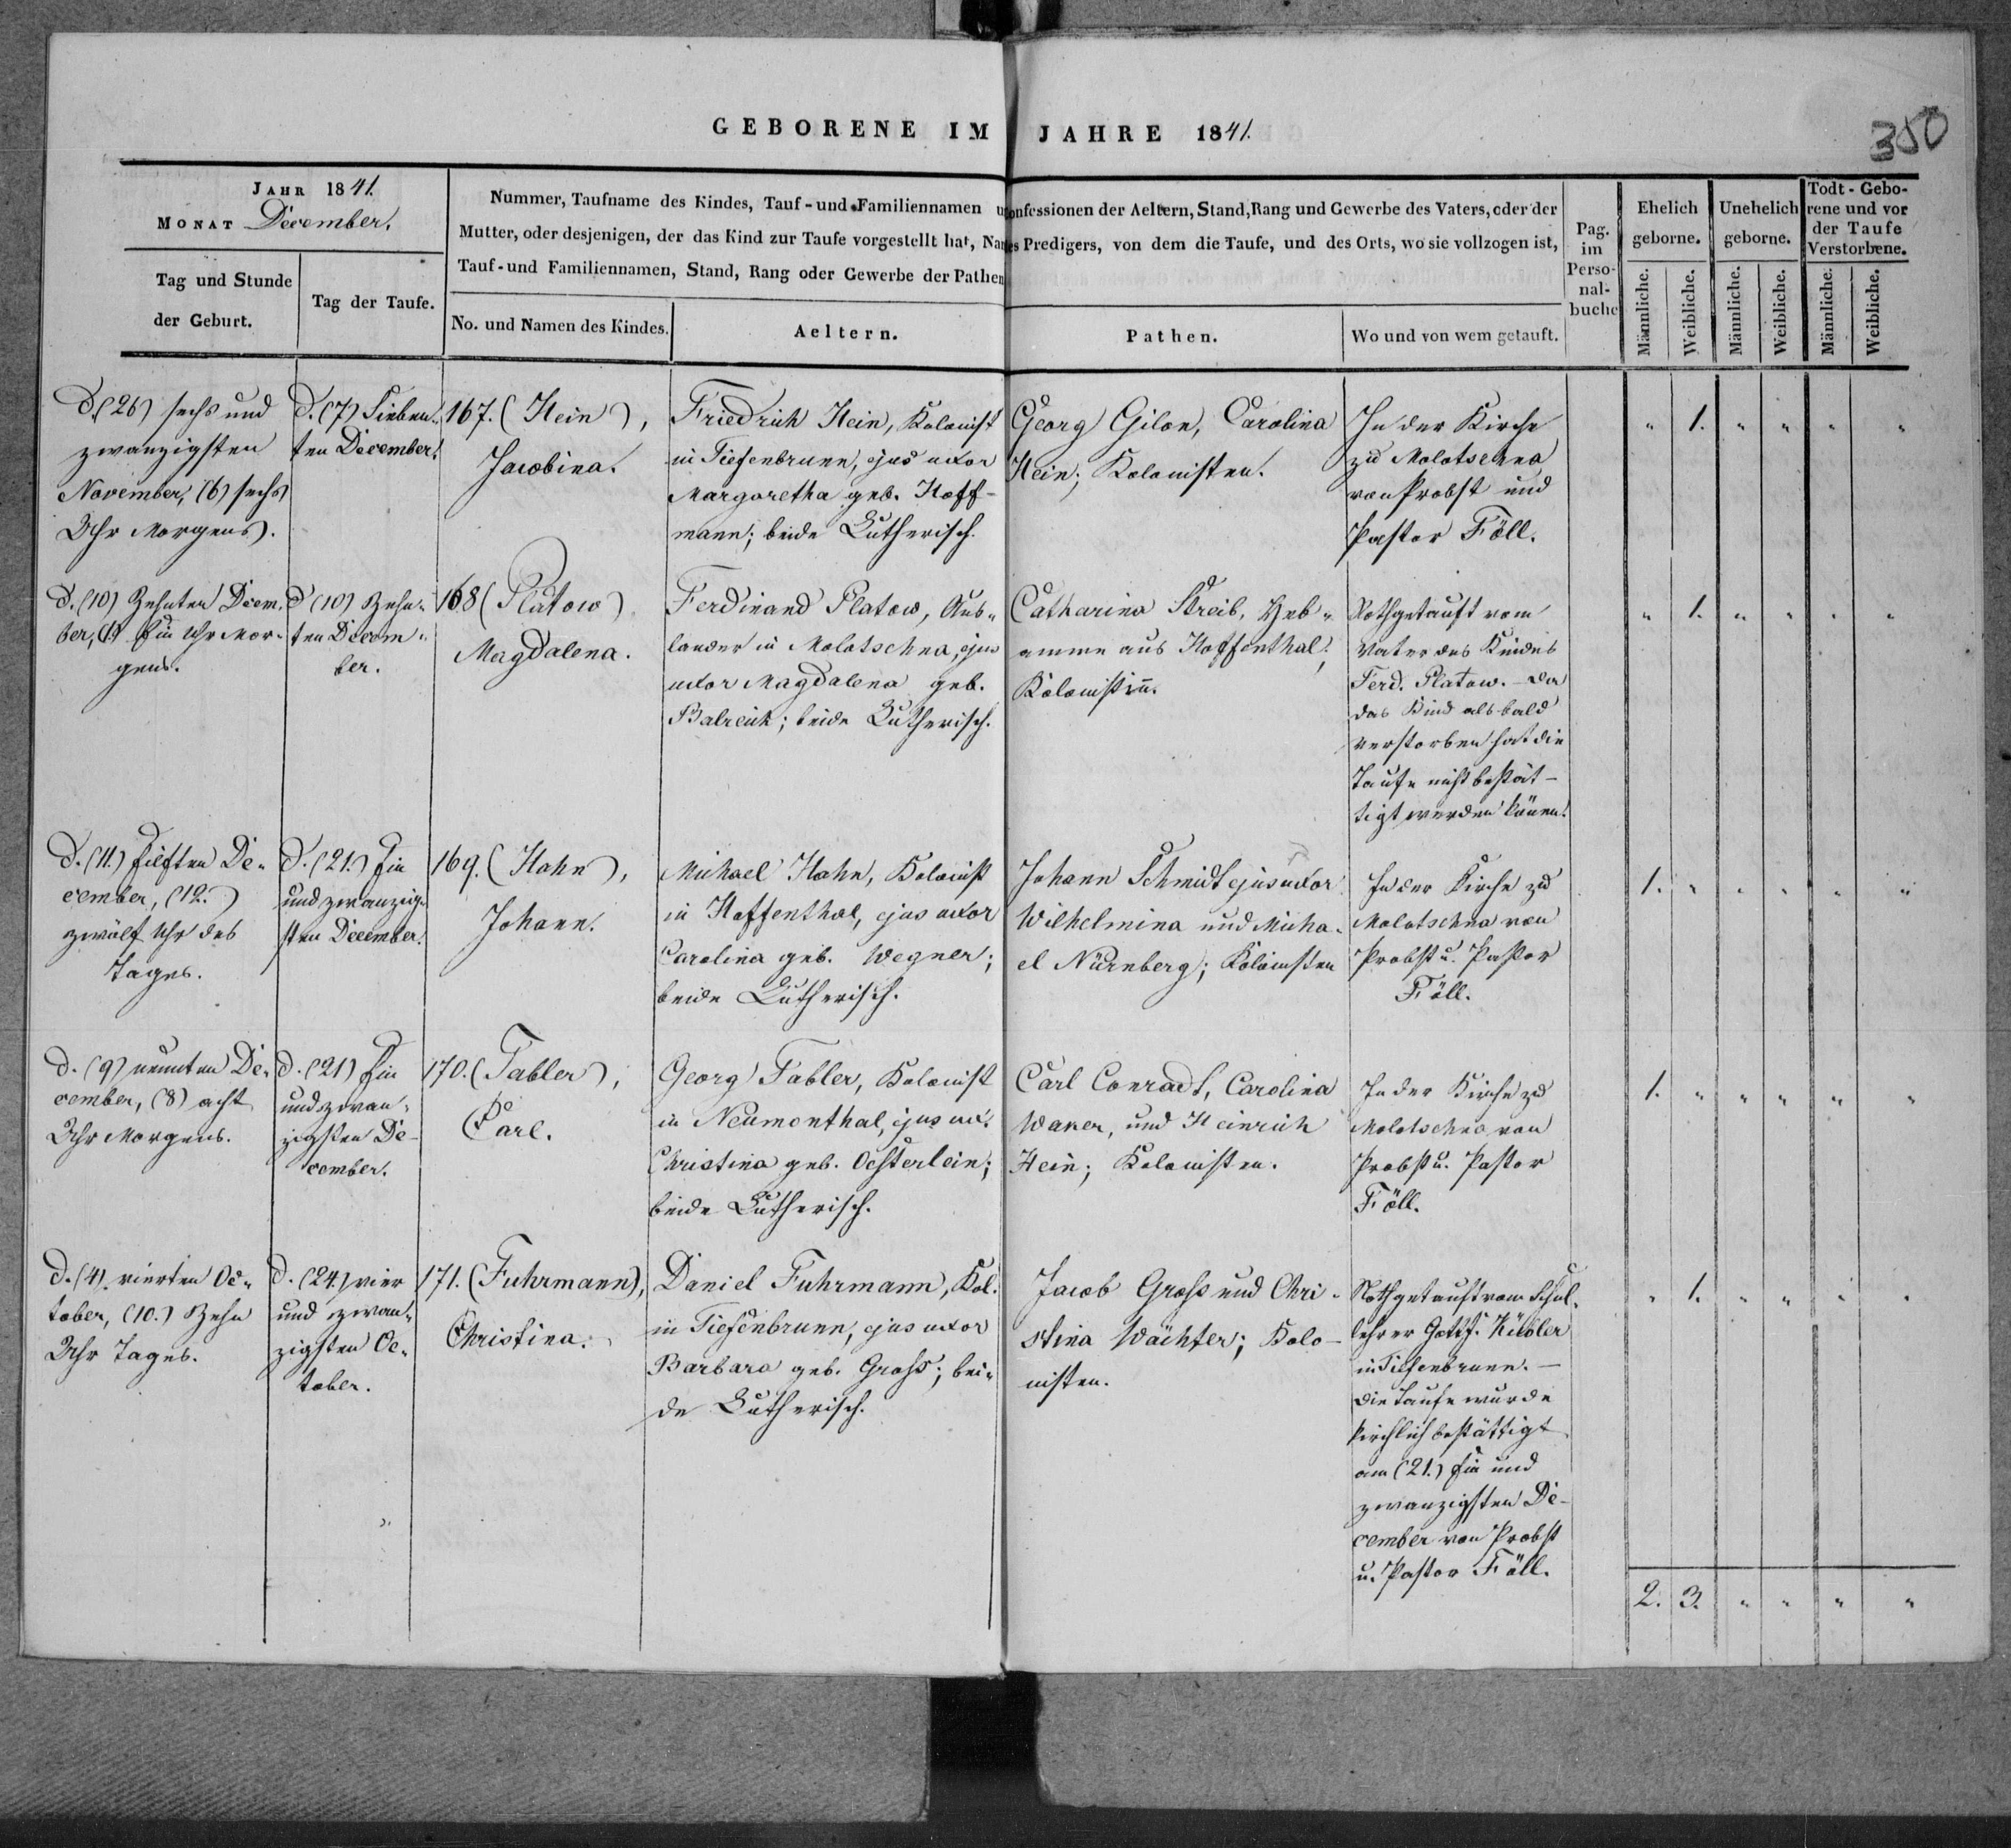 GEBORENE IM JAHRE 1841.
350
JAHR 1841.
MONAT December.
Tag und Stunde
der Geburt.
Tag der Taufe.
Nummer, Taufname des Kindes, Tauf-und Familiennamen u
onfessionen der Aeltern, Stand, Rang und Gewerbe des Vaters, oder der
Mutter, oder desjenigen, der das Kind zur Taufe vorgestellt hat, Na
es Predigers, von dem die Taufe, und des Orts, wo sie vollzogen ist,
Tauf-und Familiennamen, Stand, Rang oder Gewerbe der Pathen
No. und Namen des Kindes.
Aeltern.
Pathen.
Wo und von wem getauft.
Pag.
im
Perso-
nal-
buche
Ehelich
geborne.
Unehelich
geborne.
Todt-Gebo-
rene und vor
der Taufe
Verstorbene.
Männliche.
Weibliche.
Männliche.
Weibliche.
Männliche.
Weibliche.
d. (26) sechs und
zwanzigsten
November, (6) sechs
Uhr Morgens.
d. (7) Sieben„
ten December.
167. (Hein),
Jacobina.
Friedrich Hein, Kolonist
in Tiefenbrunn, ejus uxor
Margaretha geb. Hoff-
mann; beide Lutherisch.
Georg Gilon, Carolina
Hein; Kolonisten.
In der Kirche
zu Molotschna
von Probst und
Pastor Föll.
„ 1. „ „ „ „
d. (10) Zehnten Decem„
ber, (1) Ein Uhr Mor-
gens.
d. (10) Zehn„
ten Decem„
ber.
168 (Platow)
Magdalena.
Ferdinand Platow, Aus„
länder in Molotschna, ejus
uxor Magdalena geb.
Balreich; beide Lutherisch.
Catharina Streib, Heb„
amme aus Hoffenthal,
Kolonistin.
Nothgetauft vom
Vater des Kindes
Ferd. Platow. – Da
das Kind alsbald
verstorben hat die
Taufe nicht bestät-
tigt werden können.
„ 1. „ „ „ „
d. (11.) Eilften De„
cember, (12.)
zwölf Uhr des
Tages.
d. (21.) Ein
und zwanzig„
sten December.
169. (Hahn),
Johann.
Michael Hahn, Kolonist
in Hoffenthal, ejus uxor
Carolina geb. Wegner;
beide Lutherisch.
Johann Schmidt ejus uxor
Wilhelmina und Micha„
el Nürnberg; Kolonisten
In der Kirche zu
Molotschna von
Probst u. Pastor
Föll.
1. „ „ „ „ „
d. (9) neunten De„
cember, (8) acht
Uhr Morgens.
d. (21) Ein
und zwan„
zigsten De-
cember.
170. (Tabler),
Carl.
Georg Tabler, Kolonist
in Neumonthal, ejus ux.
Christina geb. Oesterlein;
beide Lutherisch.
Carl Conradt, Carolina
Waker, und Heinrich
Hein; Kolonisten.
In der Kirche zu
Molotschna von
Probst u. Pastor
Föll.
1. „ „ „ „ „
d. (4). vierten Oc„
tober, (10.) Zehn
Uhr Tages.
d. (24.) vier
und zwan„
zigsten Oc„
tober.
171. (Fuhrmann),
Christina.
Daniel Fuhrmann, Kol.
in Tiefenbrunn, ejus uxor
Barbara geb. Groß; bei„
de Lutherisch.
Jacob Groß und Chri„
stina Wächter; Kolo-
nisten.
Nothgetauft vom Schul„
lehrer Gottf. Kübler
in Tiefenbrunn. –
Die Taufe wurde
kirchlich bestättigt
am (21.) Ein und
zwanzigsten De-
cember von Probst
u. Pastor Föll.
„ 1. „ „ „ „
2. 3. „ „ „ „